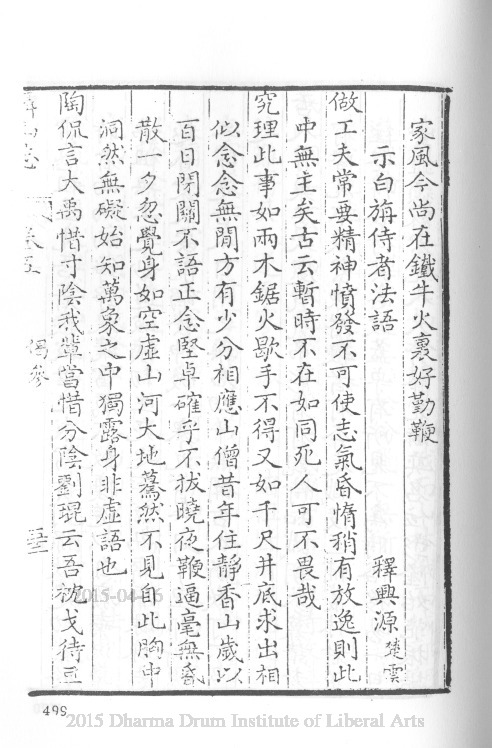 家風今尚在鐵牛火裏好勤鞭
示白旃侍者法語
釋興源楚雲
做工夫常要精神憤發不可使志氣昏惰稍有放逸則此
中無主矣古云暫時不在如同死人可不畏哉
究理此事如兩木鋸火歇手不得又如千尺井底求出相
似念念無間方有少分相應山僧昔年住靜香山歲以
百日閉關不語正念堅卓確乎不拔曉夜鞭逼毫無
散一夕忽覺身如空虛山河大地驀然不見自此胸中
洞然無礙始知萬象之中獨露身非虛語也
陶侃言大禹惜寸陰我輩當惜分陰劉琨云吾枕戈待
山志
卷五
2015-04-16
499
2015 Dharma Drum Institute of Liberal Arts